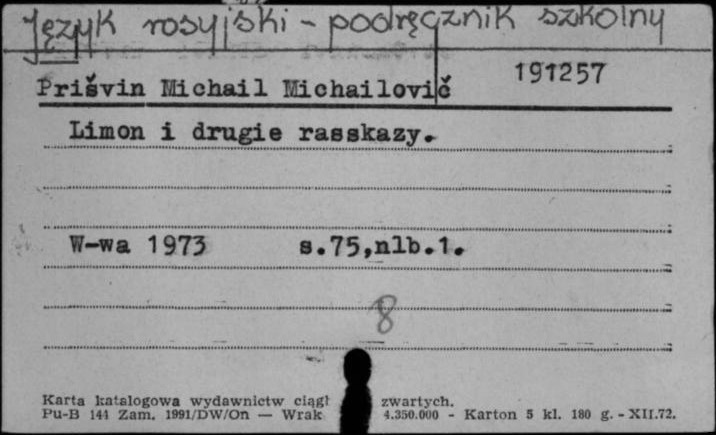 Język rosyjski - podręcznik szkolny
Prišvin Michail Michailovič 191257
Limon i drugie rasskazy.
W-wa 1973 s.75,nlb.1.
8
Karta katalogowa wydawnictw ciągł zwartych.
Pu-B 144 Zam. 1991/DW/On — Wrak 4.350.000 - Karton 5 kl. 180 g. - XII.72.